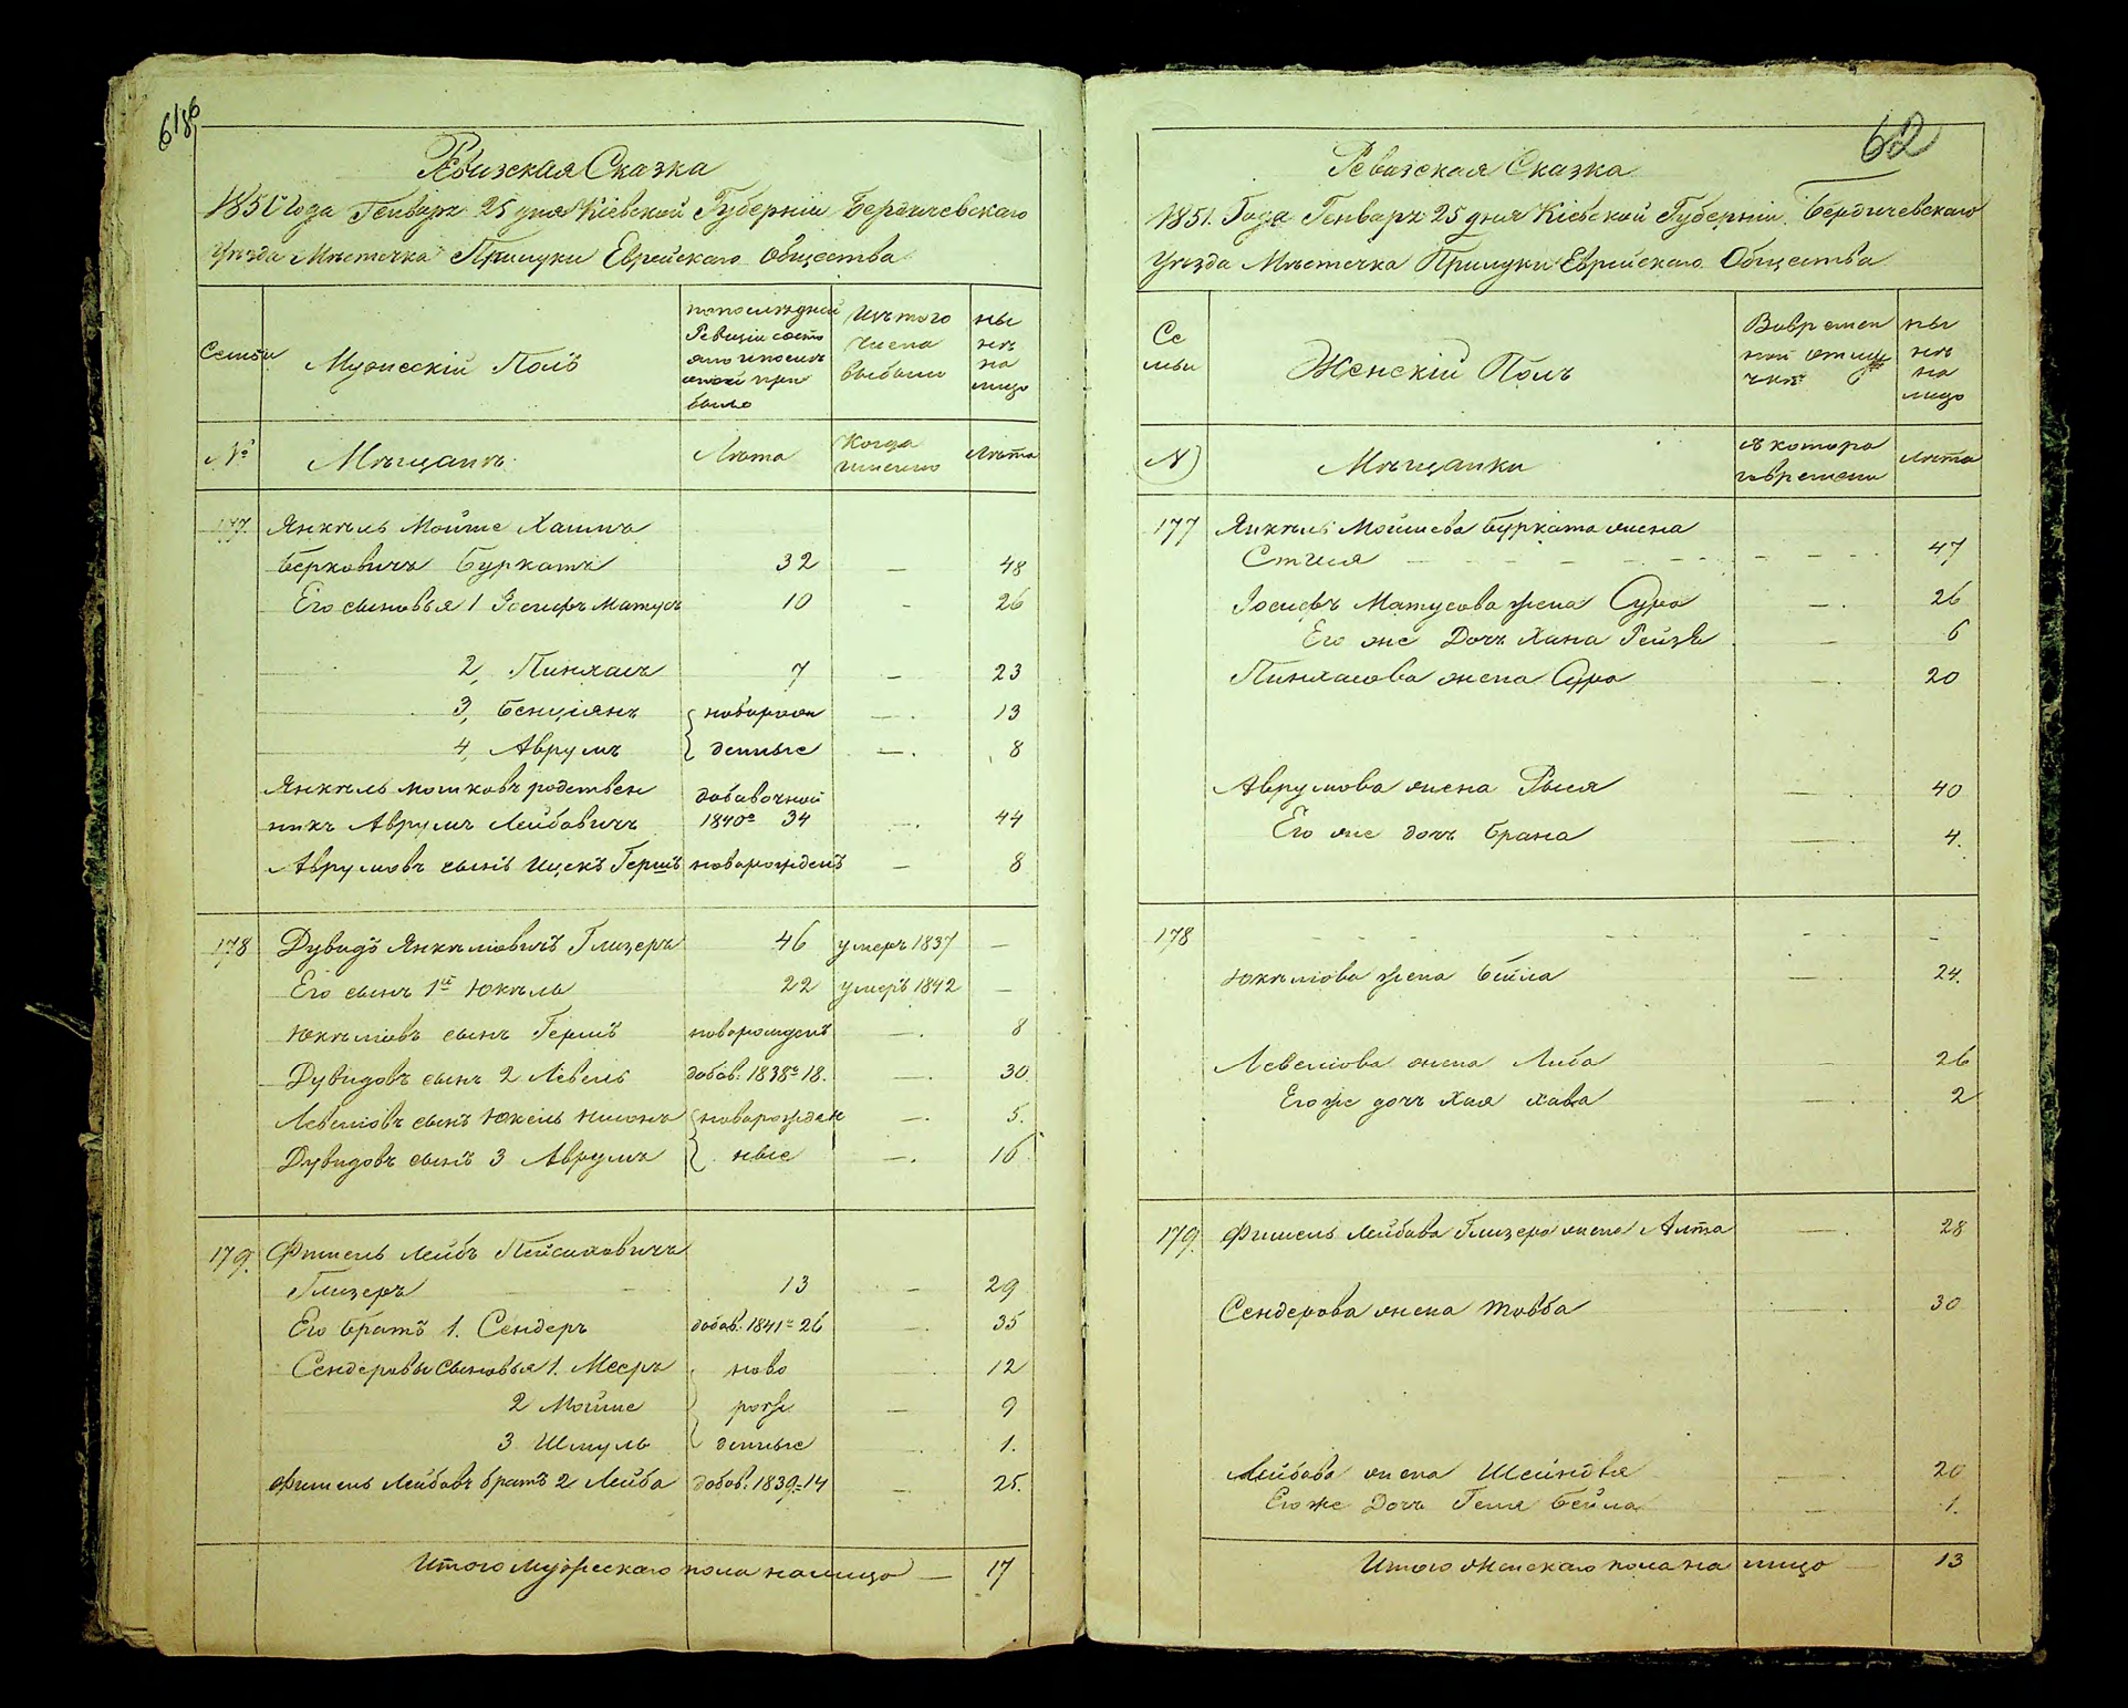 61об
Ревизская Сказка
1851 года Генваря 25 дня Кіевской Губерніи Бердичевскаго
Уѣзда Мѣстечка Прилуки Еврейскаго Общества
Семьи
Мужескій Полъ
по последней
Ревизіи состо
яло и после
оной при
было
Изъ того
числа
выбыло
ны
не
на
лицо
№
Мѣщанъ
Лѣта
Когда
именно
Лѣта
177. Янкель Мойше Хаимъ
Берковичъ Буркатъ 32 — 48
Его сыновья 1 Іосифъ Матусъ 10 - 26
2, Пинхасъ 7 — 23
3, Бенціянъ новорож — 13
4, Аврумъ денные — 8
Янкель Мошковъ родствен
никъ Аврумъ Лейбовичъ добавочной 1840г 34 — 44
Аврумовъ сынъ Ицекъ Гершъ новорожденъ — 8
178 Дувидъ Янкеліовичъ Глизеръ 46 умеръ 1837 —
Его сынъ 1й Юкель 22 умеръ 1842 —
Юкеліовъ сынъ Гершъ новорожденъ — 8
Дувидовъ сынъ 2 Левель добав. 1838г 18. — 30
Левеліовъ сынъ Юкель новорожден — 5.
Дувидовъ сынъ 3 Аврумъ ные — 16
179. Фишель Лейбъ Пейсаховичъ
Глизеръ 13 — 29
Его братъ 1. Сендеръ добав. 1841г 26 — 35
Сендеровы сыновья 1. Мееръ ново 12
2 Мойше рож — 9
3 Шмуль денные 1.
Фишель Лейбовъ братъ 2 Лейба добав. 1839г 14 — 25.
Итого мужескаго пола налицо — 17
62
Ревизская Сказка
1851. Года Генваря 25 дня Кіевской Губерніи Бердичевскаго
Уѣзда Мѣстечка Прилуки Еврейскаго Общества
Се
мьи
Женскій Полъ
Вовремен
ной отлу
чке
ны
не
на
лицо
№
Мѣщанки
съ котора
го времени
Лѣта
177 Янкель Мойшева Бурката жена
Стися — 47
Іосифъ Матусова жена Сура — 26
Его же Дочь Хана Рейзя — 6
Пинхасова жена Сура — 20
Аврумова жена Рыся — 40
Его же дочь Брана — 4.
178 — — —
Юкеліова жена Бейла — 24.
Левеліова жена Либа — 26
Его же дочь Хая Хава — 2
179. Фишель Лейбова Глизера жена Алта — 28
Сендерова жена Товба — 30
Лейбова жена Шейндля — 20
Его же Дочь Геня Бейла — 1.
Итого женскаго пола на лицо — 13